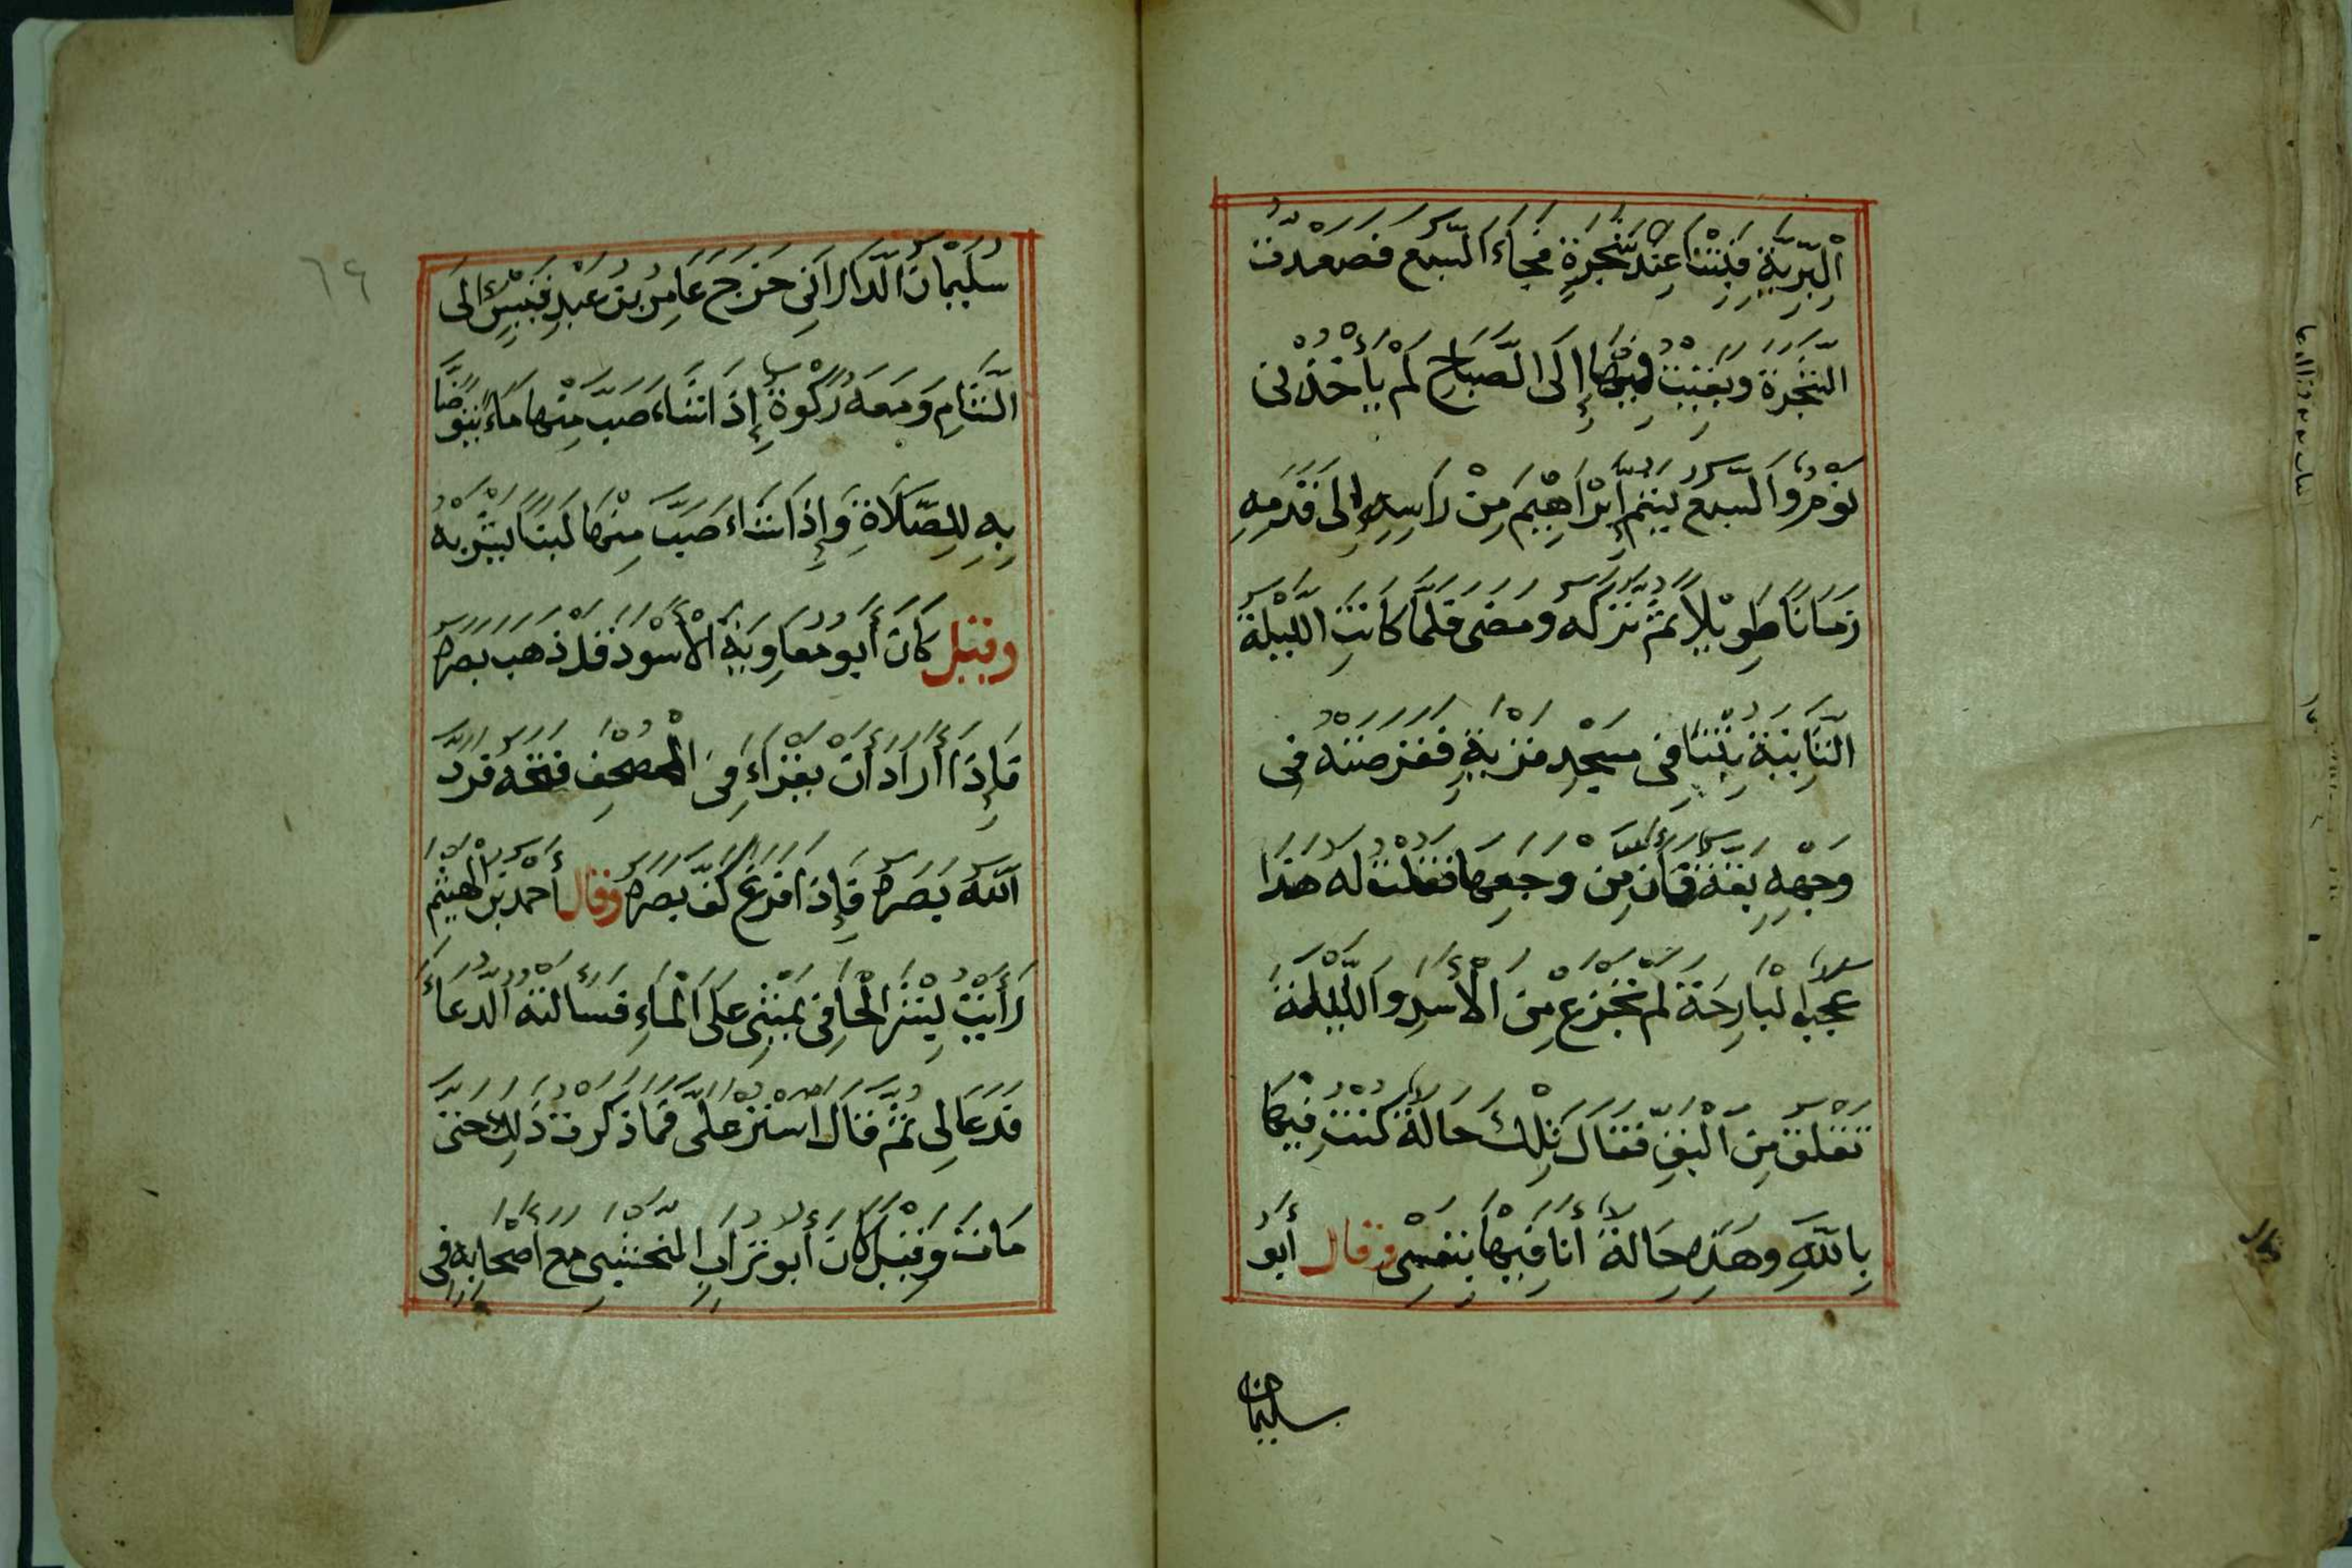 الْبَرِّيَّةِ فَبِتْنَا عِنْدَ شَجَرَةٍ فَجَاءَ السَّبُعُ فَصَعِدْتُ
الشَّجَرَةَ وَبَقِيتُ فِيهَا إِلَى الصَّبَاحِ لَمْ يَأْخُذْنِي
نَوْمٌ وَالسَّبُعُ يَشُمُّ إِبْرَاهِيْمَ مِنْ رَاسِهِ إِلَى قَدَمِهِ
زَمَانًا طَوِيْلًا ثُمَّ تَرَكَهُ وَمَضَى فَلَمَّا كَانَتِ اللَّيْلَةُ
الثَّانِيَةُ بِتْنَا فِي مَسْجِدِ قَرْيَةٍ فَقَرَصَتْهُ فِي
وَجْهِهِ بَقَّةٌ فَأَنَّ مِنْ وَجَعِهَا فَقُلْتُ لَهُ هَذَا
عَجَبٌ الْبَارِحَةَ لَمْ تَجْزَعْ مِنَ الْأَسَدِ وَاللَّيْلَةَ
تَقْلَقُ مِنَ الْبَقِّ فَقَالَ تِلْكَ حَالَةٌ كُنْتُ فِيهَا
بِاللَّهِ وَهَذِهِ حَالَةٌ أَنَا فِيْهَا بِنَفْسِي وَقَالَ أَبُو
سليمان
٦٤
سُلَيْمَانَ الدَّارَانِي خَرَجَ عَامِرُ بْنُ عَبْدِ قَيْسٍ إِلَى
الشَّامِ وَمَعَهُ رَكْوَةٌ إِذَا شَاءَ صَبَّ مِنْهَا مَاءً يَتَوَضَّأُ
بِهِ لِلصَّلَاةِ وَإِذَا شَاءَ صَبَّ مِنْهَا لَبَنًا يَشْرَبُهُ
وَقِيْلَ كَانَ أَبُو مُعَاوِيَةَ الْأَسْوَدُ قَدْ ذَهَبَ بَصَرُهُ
فَإِذَا أَرَادَ أَنْ يَقْرَاءَ فِي الْمُصْحَفِ فَتَحَهُ فَرَدَّ
اللَّهُ بَصَرَهُ فَإِذَا فَرَغَ كُفَّ بَصَرُهُ وَقَالَ أَحْمَدُ بْنُ الْهَيْثَمِ
رَأَيْتُ بِشْرَ الْحَافِي يَمْشِي عَلَى الْمَاءِ فَسَأَلْتُهُ الدُّعَاءَ
فَدَعَا لِي ثُمَّ قَالَ اسْتُرْ عَلَيَّ فَمَا ذَكَرْتُ ذَلِكَ حَتَّى
مَاتَ وَقِيْلَ كَانَ أَبُو تُرَابِ النَّخْشَبِي مَعَ أَصْحَابِهِ فِي